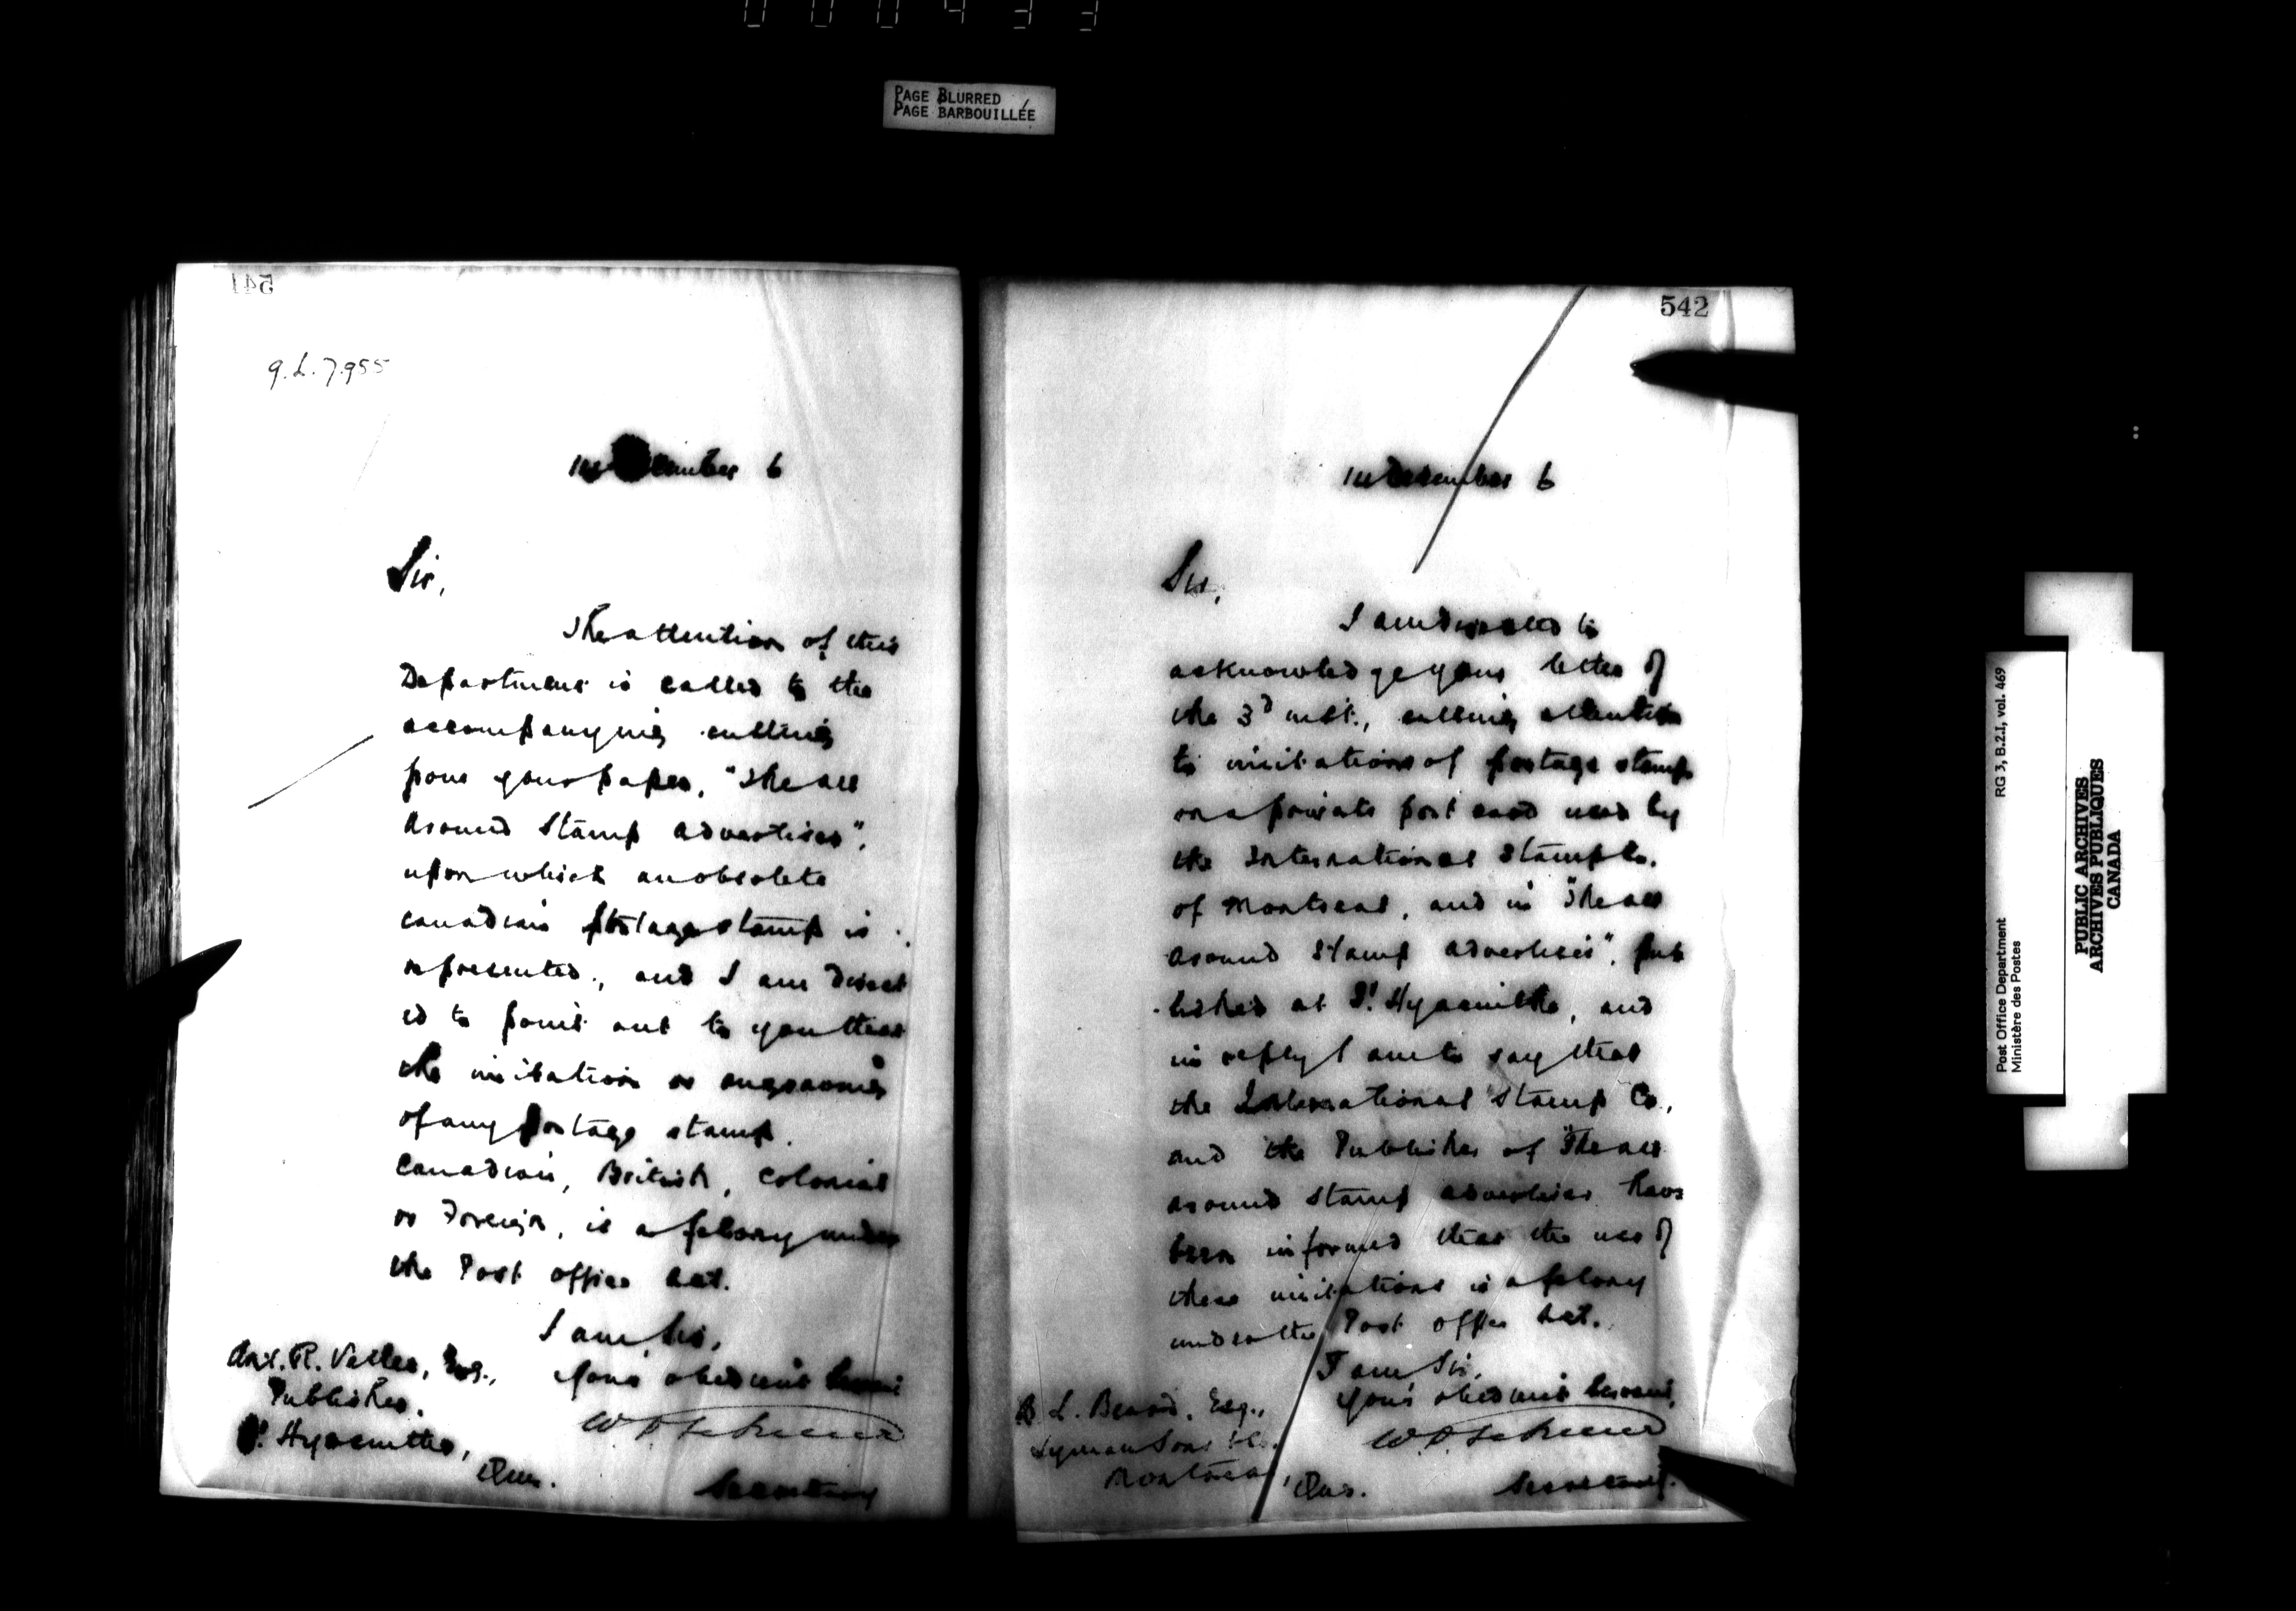 000433
PAGE BLURRED
PAGE BARBOUILLÉE
541
9.L.7.955
14 December 6
Sir,
The attention of this
Department is called to the
accompanying cutting
from your paper, "The all
around Stamp advertiser",
upon which an obsolete
Canadian postage stamp is
represented, and I am direct
ed to point out to you that
the imitation or engraving
of any postage stamp.
Canadian, British, Colonial
or Foreign, is a felony under
the Post Office Act.
I am, Sir,
Your obedient Servant
Secretary
Ant. R. Vallee, Esq.,
Publisher,
St Hyacinthe,
Que.
542
14 December 6
Sir,
I am directed to
acknowledge your letter of
the 3d inst., calling attention
to imitations of postage stamps
on a private post card used by
the International Stamp Co.
of Montreal, and in "The all
around Stamp advertiser", pub
lished at St Hyacinthe, and
in reply I am to say that
the International Stamp Co.,
and the Publisher of "The all
around Stamp advertiser have
been informed that the use of
these imitations is a felony
under the Post Office Act.
I am, Sir,
Your obedient Servant,
Secretary.
B. L. Beard, Esq.,
Lyman Sons & Co.
Montreal, Que.
RG 3, B.2.I, vol. 469
Post Office Department
Ministère des Postes
PUBLIC ARCHIVES
ARCHIVES PUBLIQUES
CANADA